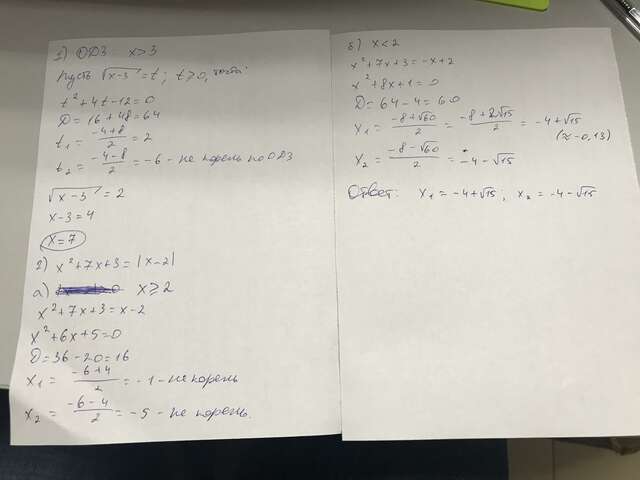 1) ОДЗ x>3
Пусть √x-3 = t; t⩾0, тогда
t²+4t-12=0
D=16+48=64
t₁ = (-4+8)/2 = 2
t₂ = (-4-8)/2 = -6 - не корень по ОДЗ
√x-3 = 2
x-3=4
x=7
2) x²+7x+3=|x-2|
а) x⩾2
x²+7x+3=x-2
x²+6x+5=0
D=36-20=16
x₁ = (-6+4)/2 = -1 - не корень
x₂ = (-6-4)/2 = -5 - не корень.
б) x<2
x²+7x+3=-x+2
x²+8x+1=0
D=64-4=60
x₁ = (-8+√60)/2 = (-8+2√15)/2 = -4+√15
(≈-0,13)
x₂ = (-8-√60)/2 = -4-√15
Ответ: x₁=-4+√15; x₂=-4-√15